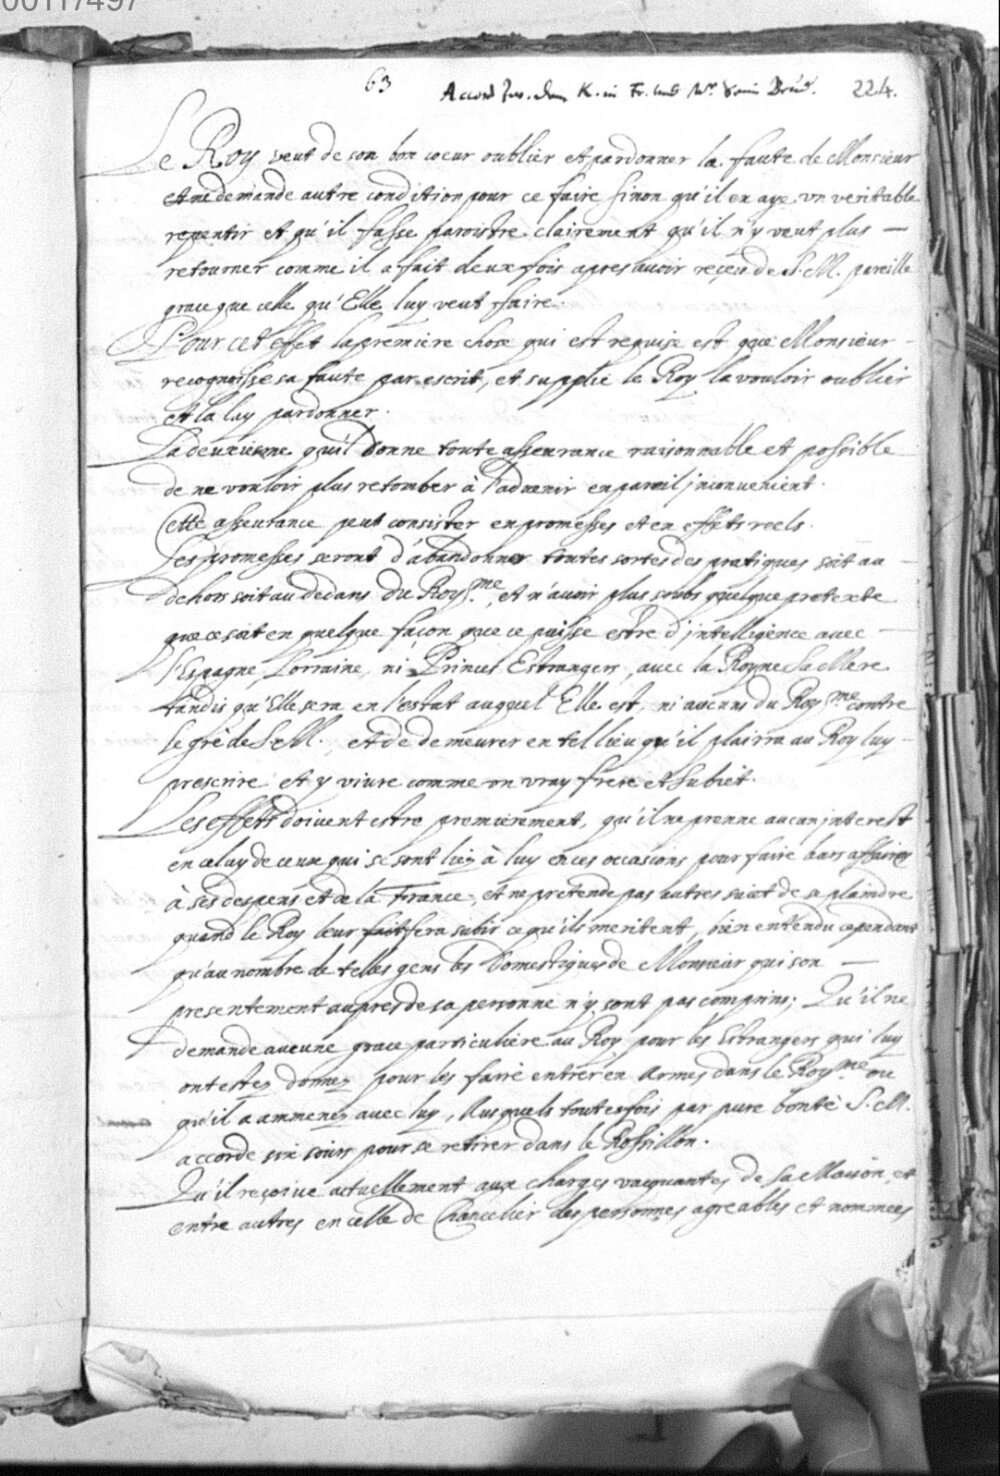 00117497
63 Accord zw. dem K. in Fr. und Mr. seim Brud. 224.
Le Roy veut de son bon coeur oublier et pardonner la faute de Monsieur
et ne demande autre condition pour ce faire sinon qu'il en aye un veritable
repentir et qu'il fasse paroistre clairement qu'il n'y veut plus —
retourner comme il a fait deux fois apres avoir reçeu de S. M. pareille
grace que celle qu'Elle luy veut faire.
Pour cet effet la premiere chose qui est requise est que Monsieur
recognoisse sa faute par escrit, et supplie le Roy la vouloir oublier
et la luy pardonner.
La deuxiesme qu'il donne toute asseurance raisonnable et possible
de ne vouloir plus retomber à l'advenir en pareil jnconvenient.
Cette asseurance peut consister en promesses et en effets reels.
Les promesses seront d'abandonner toutes sortes des pratiques soit au —
dehors soit au dedans du Roy.me, et n'avoir plus soubs quelque pretexte
que ce soit en quelque façon que ce puisse estre d'jntelligence avec —
l'Espagne, Lorraine, ni Princes Estrangers, avec la Royne Sa Mere
tandis qu'Elle sera en l'estat auquel Elle est, ni aucuns du Roy.me contre
le gré de S. M., et de demeurer en tel lieu qu'il plairra au Roy luy —
prescrire et y vivre comme un vray frere et subiet.
Les effets doivent estre premierement, qu'il ne prenne aucun jnterest
en celuy de ceux qui se sont liez à luy en ces occasions pour faire leurs affaires
à ses despens et de la France, et ne pretende pas autres suiet de se plaindre
quand le Roy leur fera subir ce qu'ils meritent, bien entendu cependant
qu'au nombre de telles gens les Domestiques de Monsieur qui son —
presentement aupres de sa personne n'y sont pas comprins; Qu'il ne
demande aucune grace particuliere au Roy pour les Estrangers qui luy
ont estez donnez pour les faire entrer en armes dans le Roy.me ou
qu'il a ammenez avec luy, Ausquels toutesfois par pure bonté S. M.
accorde six iours pour se retirer dans le Rossillon.
Qu'il reçoive actuellement aux charges vacquantes de sa Maison, et
entre autres en celle de Chancelier des personnes agreables et nommees